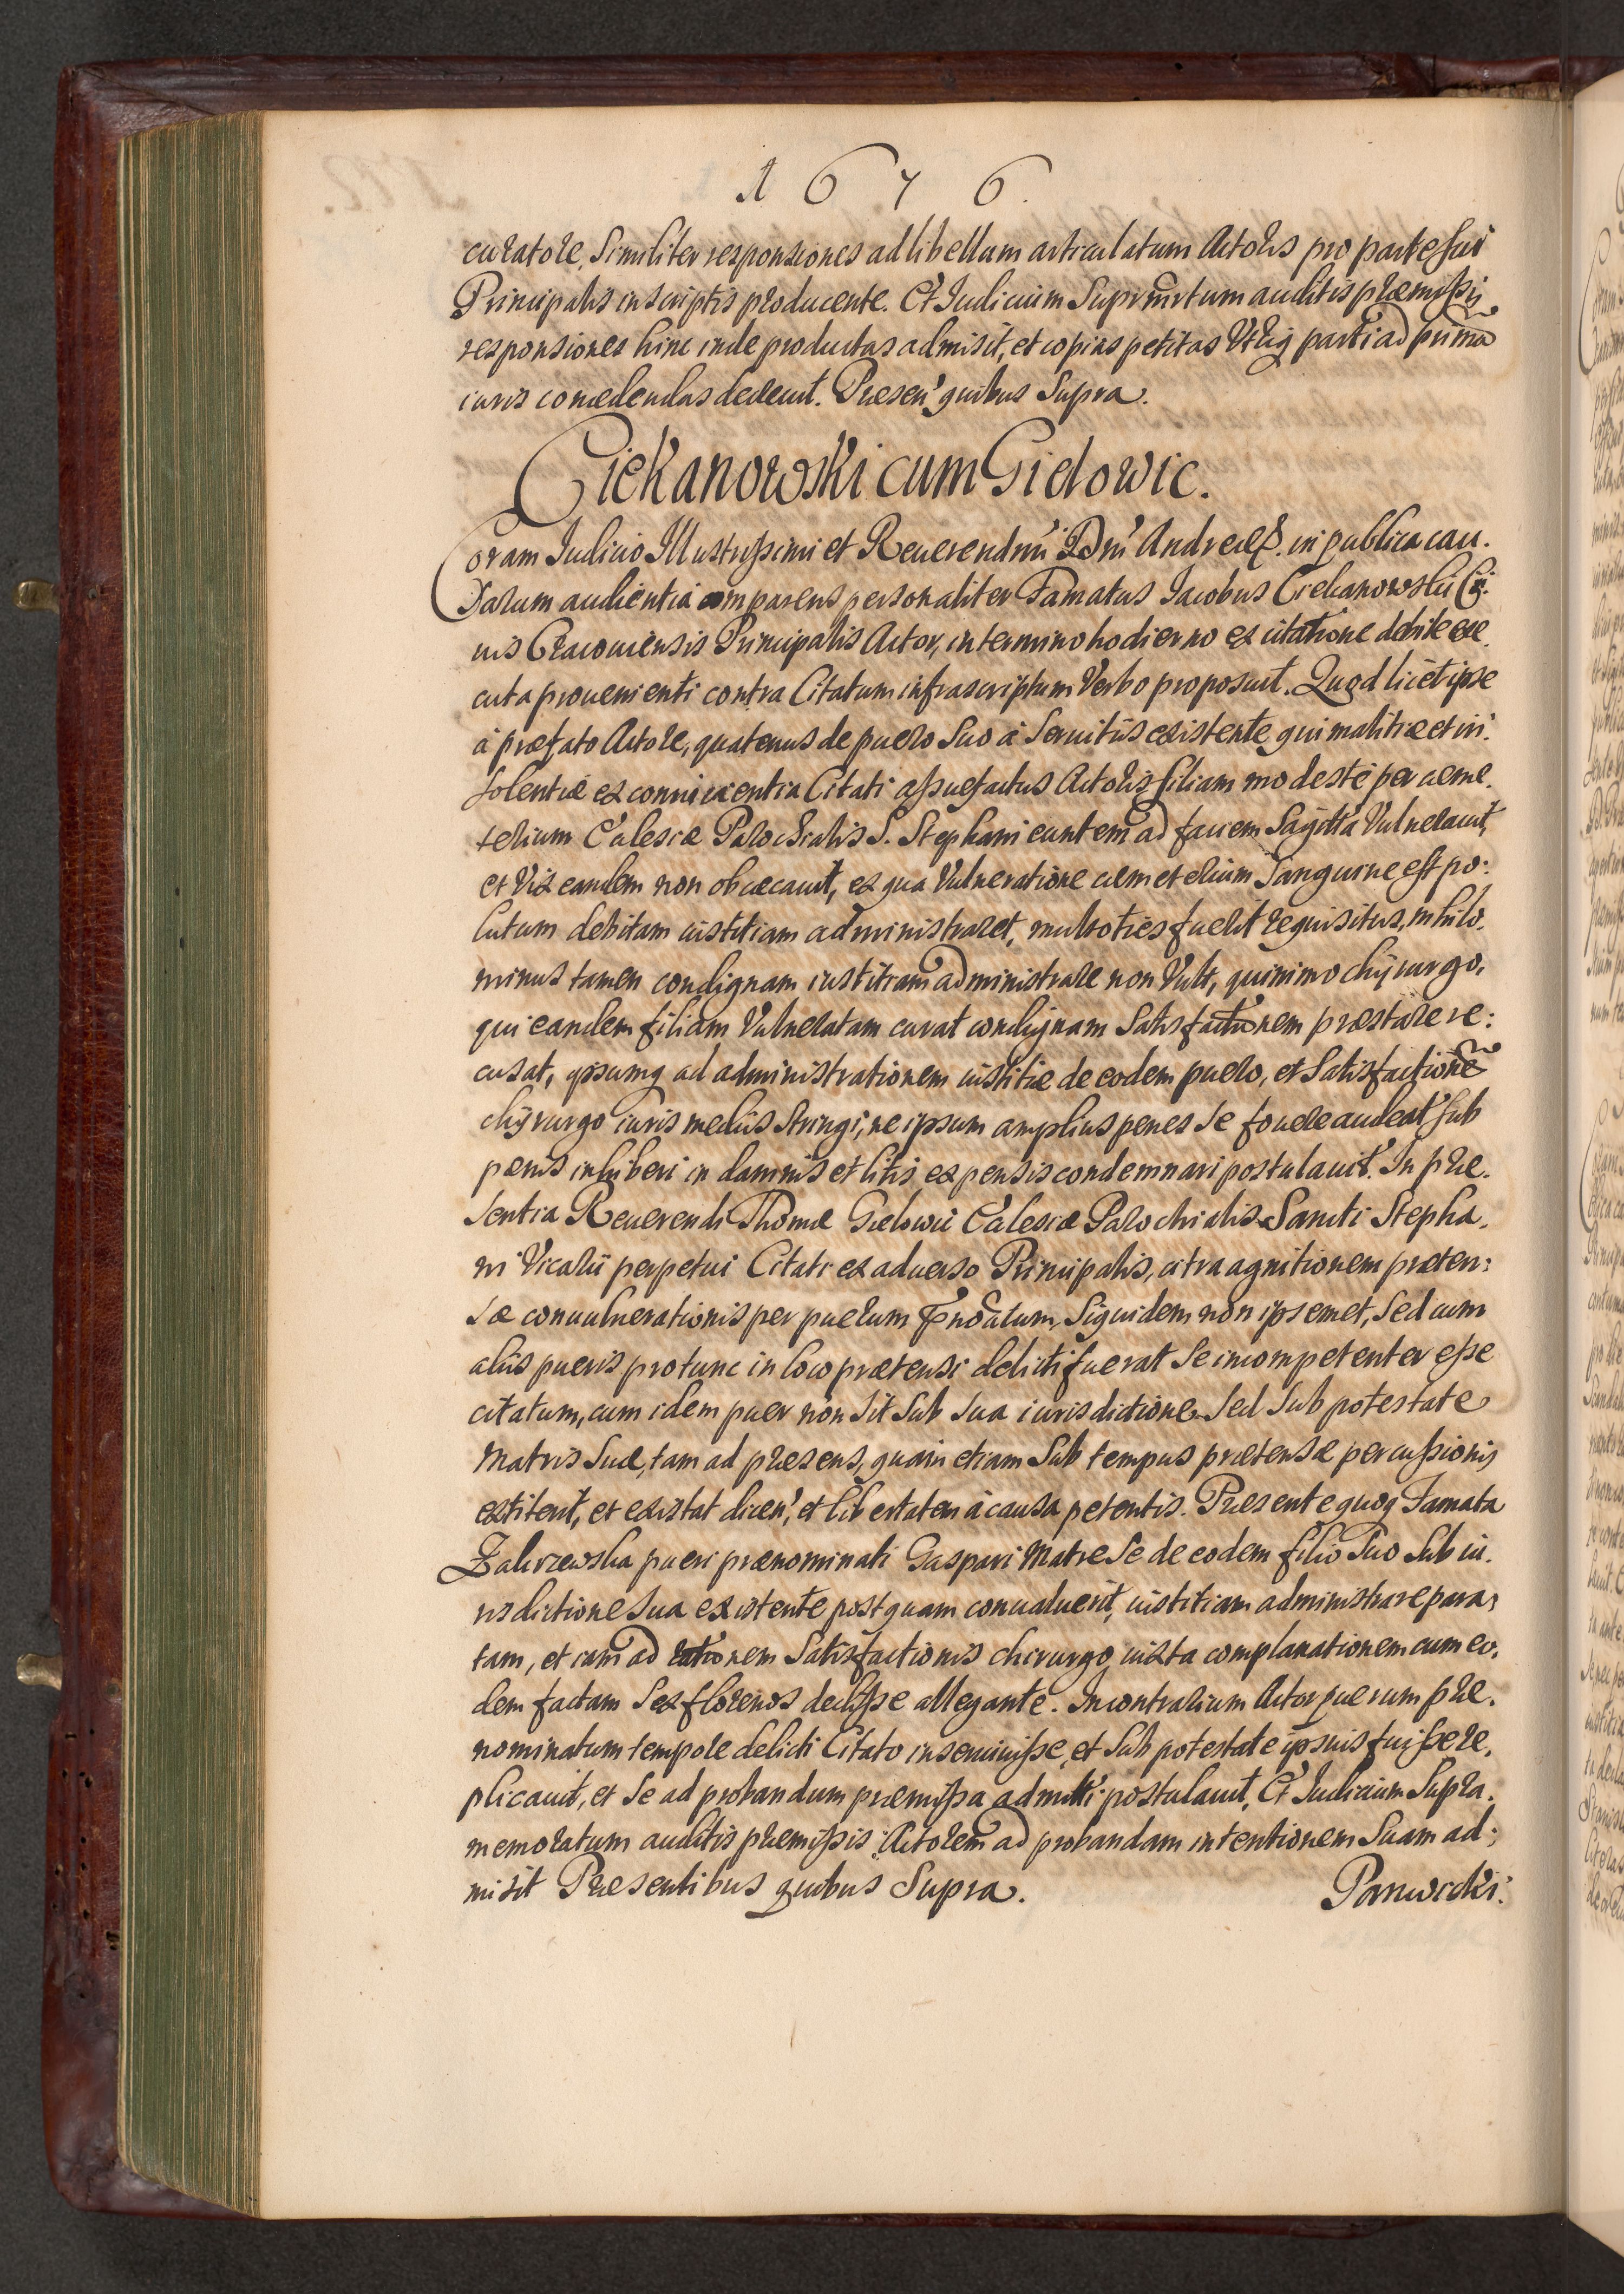 1676.
curatore. Similiter responsiones ad libellum articulatum Actoris pro parte sui
Principalis in scriptis producente. Et Iudicium Suprmrtum auditis præmissis
responsiones hinc inde productas admisit, et copias petitas Utriq parti ad prima
iuris concedendas decreuit. Præsen' quibus Supra.
Ciekanowski cum Gielowic.
Coram Iudicio Illustrissimi et Reuerendmi Dni Andreæ in publica cau.
sarum audientia comparens personaliter Famatus Iacobus Ciekanowski Ci:
uis Cracouiensis Principalis Actor, in termino hodierno ex citatione debite exe.
cuta prouenienti contra Citatum infrascriptum Verbo proposuit. Quod licet ipse
à præfato Actore, quatenus de puero suo à seruitiis existente qui malitiæ et in:
solentiæ ex conniuentia Citati assuefactus Actoris filiam modeste per cæme.
terium Ecclesiæ Parochialis S. Stephani euntem ad faciem Sagitta Vulnerauit,
et Vix eandem non obcæcauit, ex qua Vulneratione cæmeterium Sanguine est po:
lutum debitam iustitiam administraret, multoties fuerit requisitus, nihilo.
minus tamen condignam iustitiam administrare non Vult, quinimo chyrurgo,
qui eandem filiam Vulneratam curat condignam Satisfactionem præstare re:
cusat, ipsumq ad administrationem iustitiæ de eodem puero, et Satisfactione
chyrurgo iuris mediis stringi, ne ipsum amplius penes se fouere audeat sub
pænis inhiberi in damnis et litis expensis condemnari postulauit. In præ.
sentia Reuerendi Thomæ Gielowic Ecclesiæ Parochialis Sancti Stepha.
ni Vicarii perpetui Citati ex aduerso Principalis, citra agnitionem præten:
sæ conuulnerationis per puerum siquidem non ipsemet, sed cum
aliis pueris protunc in loco prætensi delicti fuerat se incompetenter esse
citatum, cum idem puer non sit sub sua iurisdictione sed sub potestate
Matris suæ, tam ad præsens, quam etiam sub tempus prætensæ percussionis
extiterit, et existat dicen', et libertatem à causa petentis. Præsente quoq Famata
Zakrzewska pueri prænominati Gaspari Matre se de eodem filio suo sub iu.
risdictione sua existente postquam conualuerit, iustitiam administrare para,
tam, et iam ad rationem Satisfactionis chirurgo iuxta complanationem cum eo.
dem factam sex florenos dedisse allegante. In contrarium Actor puerum præ.
nominatum tempore delicti Citato inseruiuisse, et sub potestate ipsius fuisse re.
plicauit, et se ad probandum præmissa admitti postulauit. Et Iudicium Supra.
memoratum auditis præmissis Actorem ad probandam intentionem suam ad:
misit Præsentibus quibus Supra.